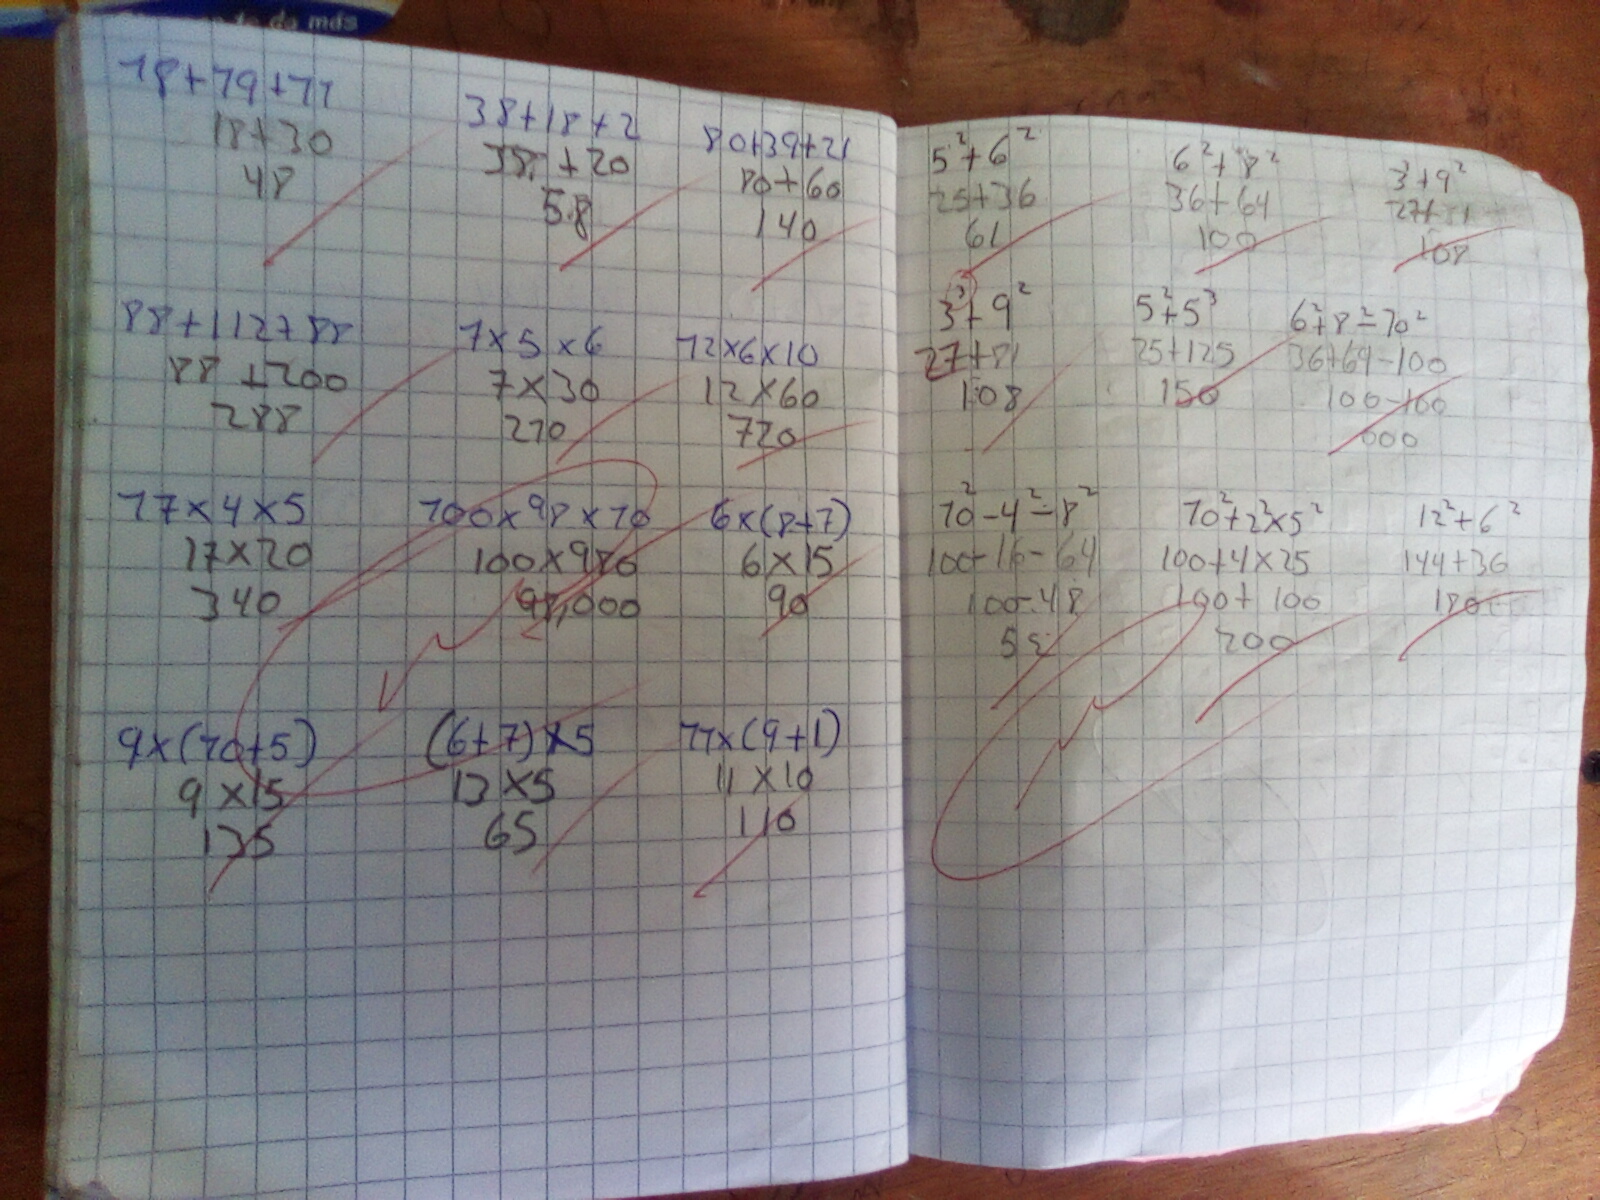 do más
18+19+11
18+30
48
38+18+2
38+20
58
80+39+21
80+60
140
88+112+88
88+200
288
7×5×6
7×30
210
12×6×10
12×60
720
17×4×5
17×20
340
100×98×10
100×980
98,000
6×(8+7)
6×15
90
9×(10+5)
9×15
135
(6+7)×5
13×5
65
11×(9+1)
11×10
110
5²+6²
25+36
61
6²+8²
36+64
100
3³+9²
27+81
108
3³+9²
27+81
108
5²+5³
25+125
150
6²+8²-10²
36+64-100
100-100
000
10²-4²-8²
100-16-64
100-48
52
10²+2²×5²
100+4×25
100+100
200
12²+6²
144+36
180